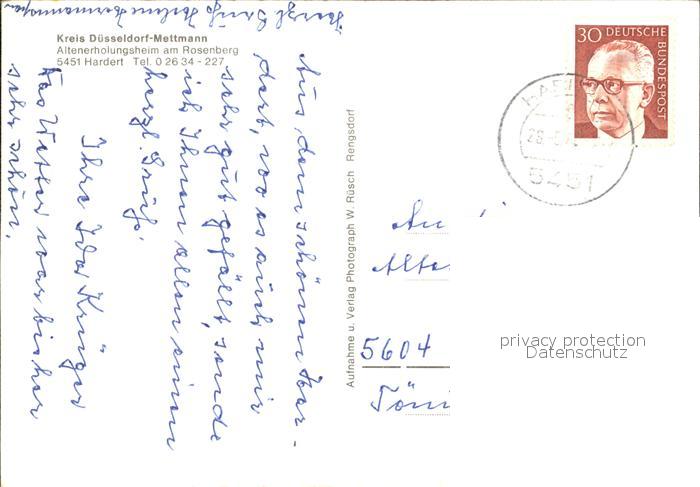 Herzl. Grüße Helene
Kreis Düsseldorf-Mettmann
Altenerholungsheim am Rosenberg
5451 Hardert Tel. 0 26 34 - 227
Aus dem schönen Har-
dert, wo es auch mir
sehr gut gefällt, sende
ich Ihnen allen einen
herzl. Gruß.
Ihre Ida Krüger
Das Wetter war bisher
sehr schön.
Aufnahme u. Verlag Photograph W. Rüsch Rengsdorf
30 DEUTSCHE
BUNDESPOST
5451
An
Alte
5604
Töni
privacy protection
Datenschutz